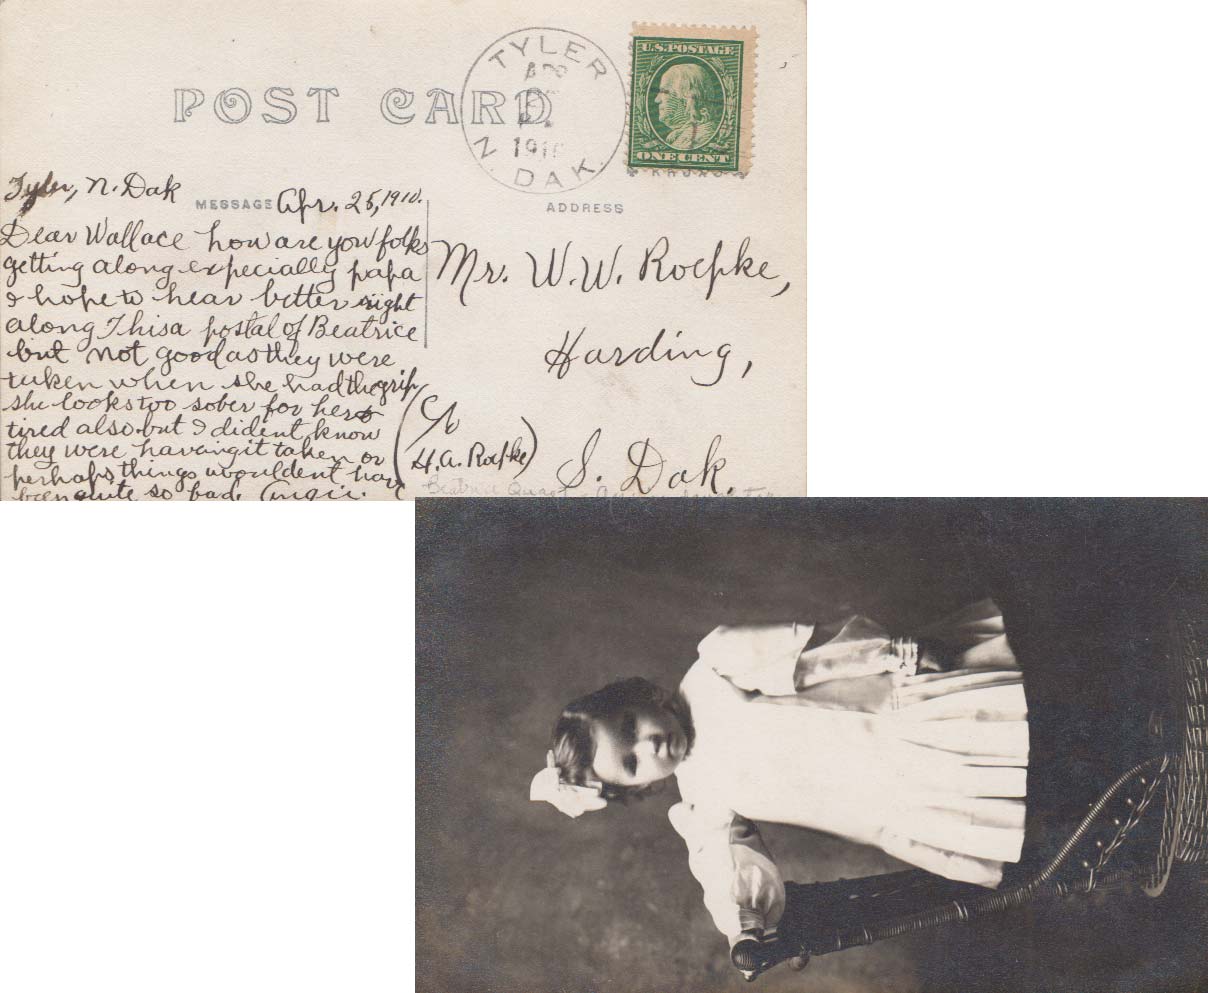 POST CARD
TYLER
APR
1910
N. DAK.
U.S. POSTAGE
ONE CENT
Tyler, N. Dak
MESSAGE
Apr. 25, 1910.
ADDRESS
Dear Wallace how are you folks
getting along expecially papa
I hope to hear better right
along This a postal of Beatrice
but not good as they were
taken when she had the grip
she looks too sober for her &
tired also. but I dident know
they were having it taken or
perhaps things wouldent have
been quite so bad. Angie.
Mr. W. W. Roepke,
Harding,
S. Dak.
(C/o
H. A. Roepke)
Beatrice Quast